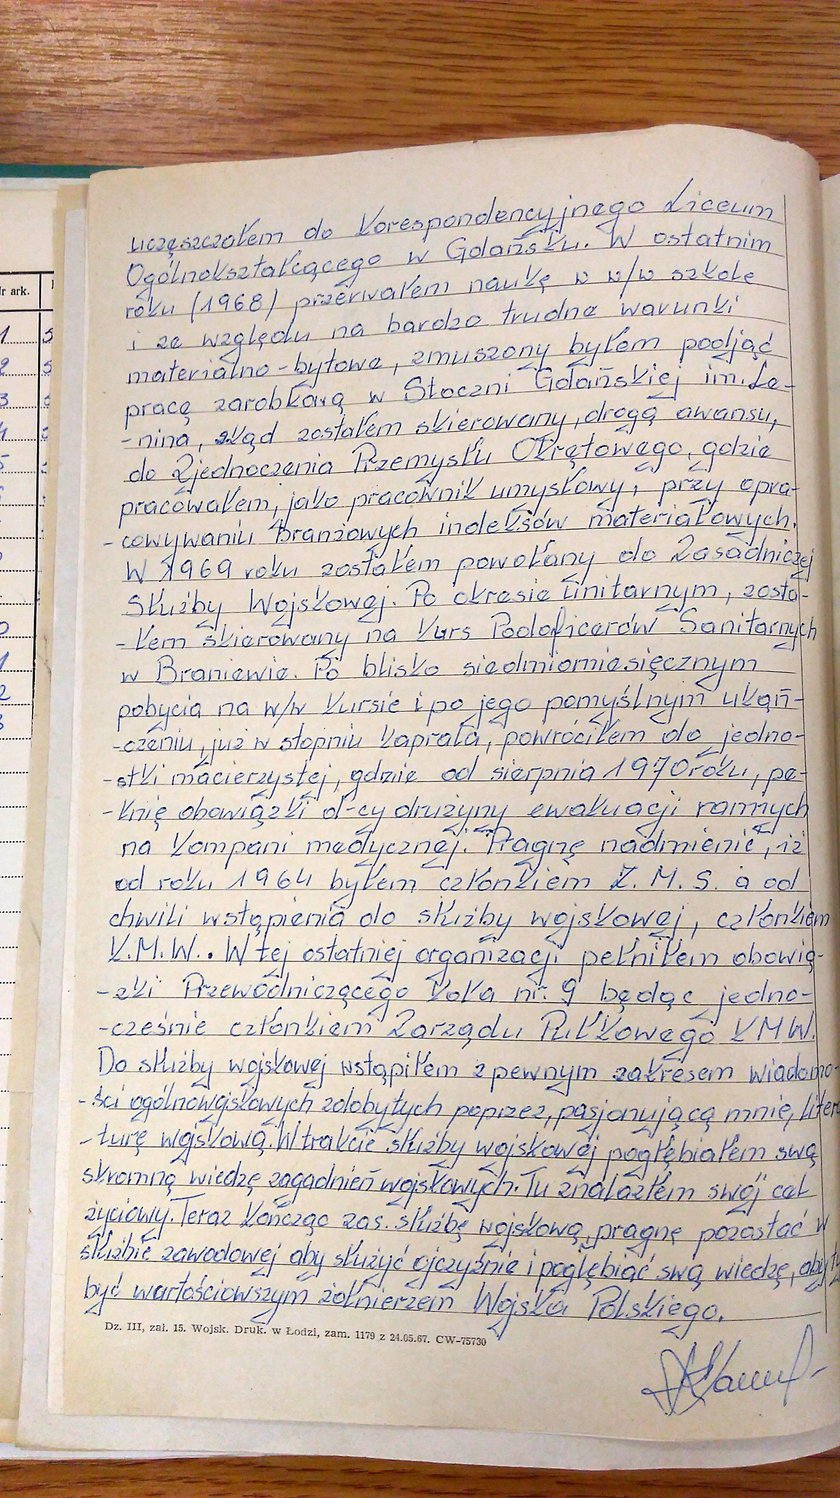 uczęszczałem do Korespondencyjnego Liceum
Ogólnokształcącego w Gdańsku. W ostatnim
roku (1968) przerwałem naukę w w/w szkole
i ze względu na bardzo trudne warunki
materialno-bytowe, zmuszony byłem podjąć
pracę zarobkową w Stoczni Gdańskiej im. Le-
-nina, skąd zostałem skierowany, drogą awansu,
do Zjednoczenia Przemysłu Okrętowego, gdzie
pracowałem, jako pracownik umysłowy, przy opra-
-cowywaniu Branżowych indeksów materiałowych.
W 1969 roku zostałem powołany do Zasadniczej
Służby Wojskowej. Po okresie unitarnym, zosta-
-łem skierowany na kurs Podoficerów Sanitarnych
w Braniewie. Po blisko siedmiomiesięcznym
pobycia na w/w kursie i po jego pomyślnym ukoń-
-czeniu, już w stopniu kaprala, powróciłem do jedno-
-stki macierzystej, gdzie od sierpnia 1970 roku, peł-
-knię obowiązki d-cy drużyny ewakuacji rannych
na kompani medycznej. Pragnę nadmienić, iż
od roku 1964 byłem członkiem Z.M.S. a od
chwili wstąpienia do służby wojskowej, członkiem
K.M.W.. W tej ostatniej organizacji pełniłem obowią-
-zki Przewodniczącego Koła nr. 9 będąc jedno-
-cześnie członkiem Zarządu Pułkowego KMW.
Do służby wojskowej wstąpiłem z pewnym zakresem wiadomo-
-ści ogólnowojskowych zdobytych poprzez, pasjonującą mnie, litera-
-turę wojskową. W trakcie służby wojskowej pogłębiałem swą
skromną wiedzę zagadnień wojskowych. Tu znalazłem swój cel
życiowy. Teraz kończąc zas. służbę wojskową, pragnę pozostać w
służbie zawodowej aby służyć ojczyźnie i pogłębiać swą wiedzę, aby
być wartościowszym żołnierzem Wojska Polskiego.
Dz. III, zał. 15. Wojsk. Druk. w Łodzi, zam. 1179 z 24.05.67. CW-75730
r ark.